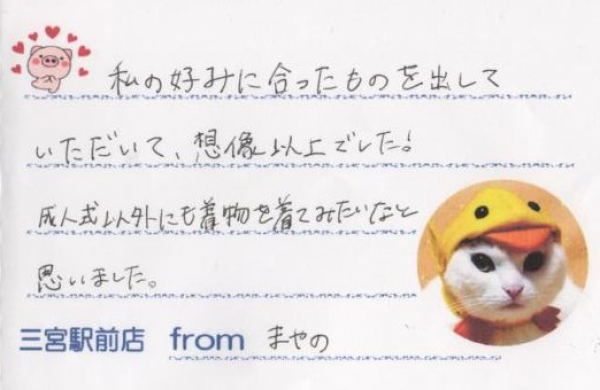 私の好みに合ったものを出して
いただいて、想像以上でした!
成人式以外にも着物を着てみたいなと
思いました。
三宮駅前店 from まやの